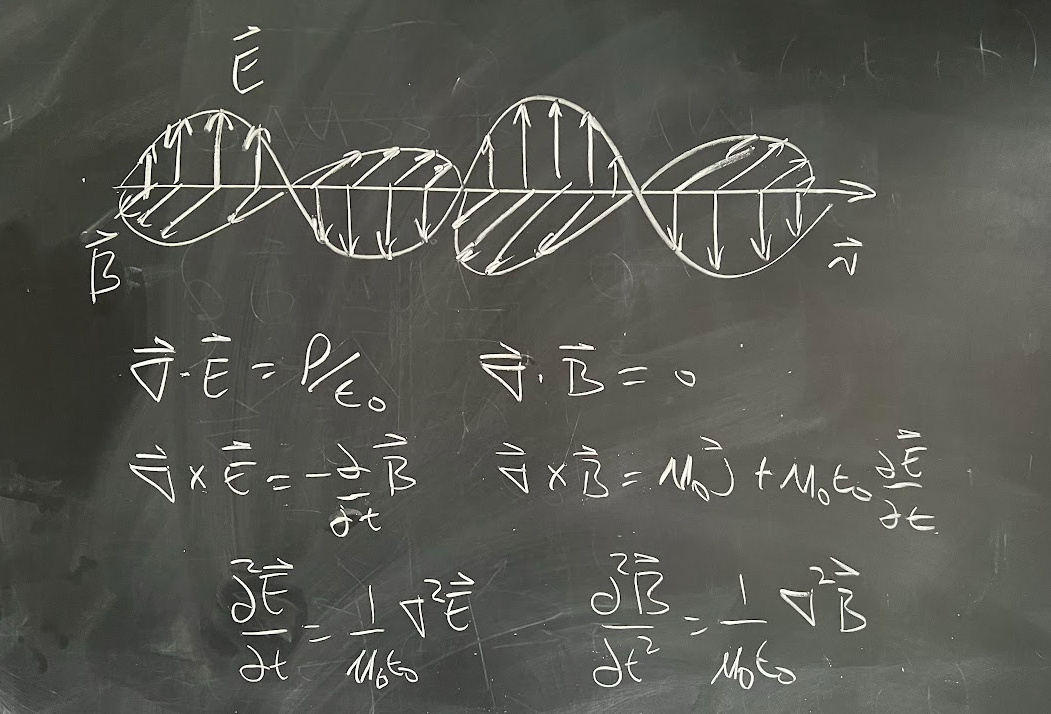 E⃗
B⃗
v⃗
∇⃗·E⃗ = ρ/ε₀   ∇⃗·B⃗ = 0
∇⃗×E⃗ = -∂/∂t B⃗   ∇⃗×B⃗ = μ₀J⃗ + μ₀ε₀ ∂E⃗/∂t
∂²E⃗/∂t = 1/μ₀ε₀ ∇²E⃗   ∂²B⃗/∂t² = 1/μ₀ε₀ ∇²B⃗